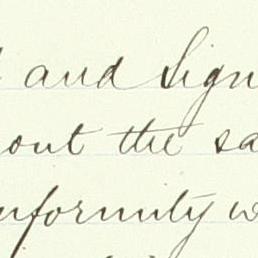 and Sign
out the sa
nformity w